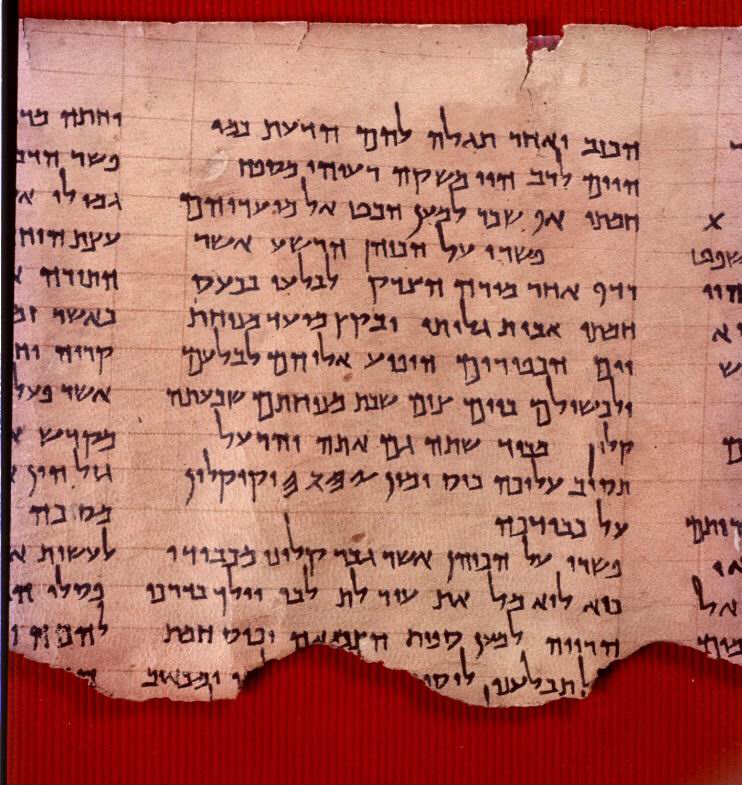 שפט
היו
יא
ש
דותם
או
אל
הכזב ואחר תגלה להם הדעת כמי
היום לרב הוי משקה רעיהו מספח
חמתו אף שכר למען הבט אל מועדיהם
פשרו על הכוהן הרשע אשר
רדף אחר מורה הצדק לבלעו בכעס
חמתו אבית גלותו ובקץ מועד מנוחת
יום הכפורים הופיע אליהם לבלעם
ולכשילם ביום צום שבת מנוחתם שבעתה
קלון מכבוד שתה גם אתה והרעל
תסוב עליכה כוס ימין 𐤉𐤄𐤅𐤄 וקיקלון
על כבודכה
פשרו על הכוהן אשר גבר קלונו מכבודו
כיא לוא מל את עור לת לבו וילך בדרכי
הרווה למען ספות הצמאה וכוס חמת
תבלענו לוסי ומכאוב
יחתה
פשר הדב
גמולו א
עצת היח
התורה א
כאשר זמ
קריה וח
אשר פעל
מקדש א
גול הון א
מסכה
לעשות א
פסלו הי
להם